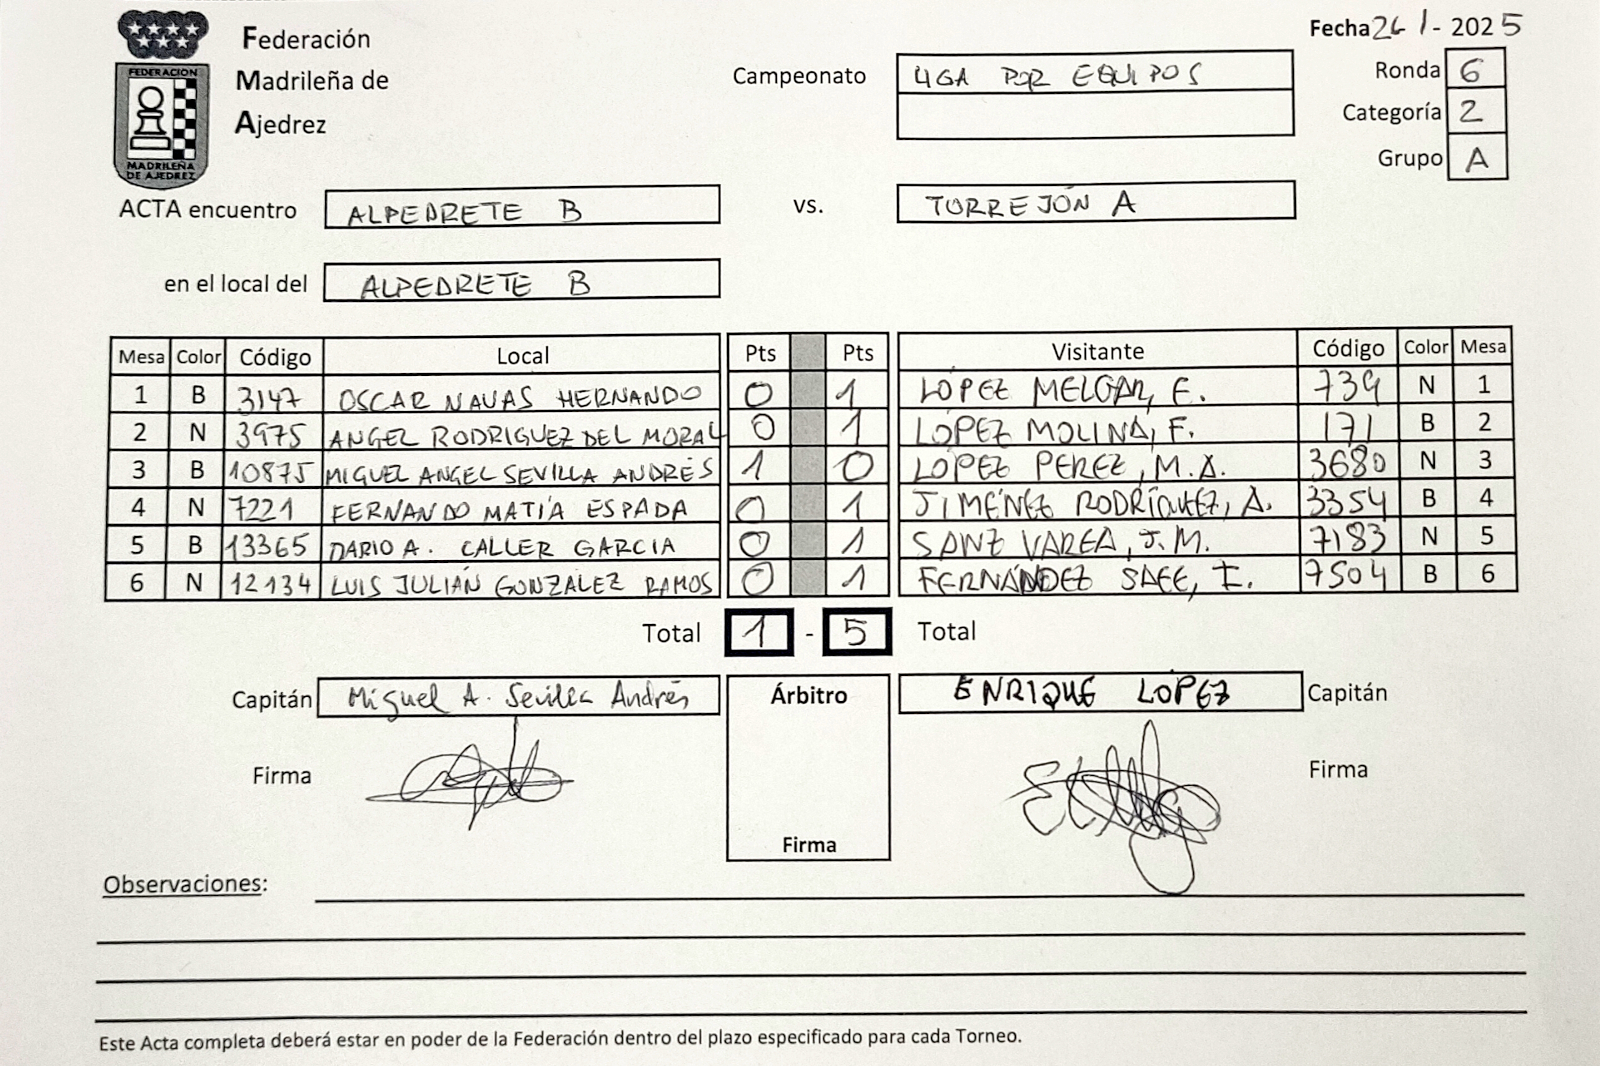 Federación
Madrileña de
Ajedrez
FEDERACION
MADRILEÑA
DE AJEDREZ
Fecha 26 1 - 2025
Campeonato LIGA POR EQUIPOS
Ronda 6
Categoría 2
Grupo A
ACTA encuentro ALPEDRETE B vs. TORREJÓN A
en el local del ALPEDRETE B
Mesa Color Código Local Pts Pts Visitante Código Color Mesa
1 B 3147 OSCAR NAVAS HERNANDO 0 1 LÓPEZ MELGAR, E. 739 N 1
2 N 3975 ANGEL RODRIGUEZ DEL MORAL 0 1 LÓPEZ MOLINA, F. 171 B 2
3 B 10875 MIGUEL ANGEL SEVILLA ANDRÉS 1 0 LÓPEZ PEREZ, M.A. 3680 N 3
4 N 7221 FERNANDO MATÍA ESPADA 0 1 JIMÉNEZ RODRÍGUEZ, A. 3354 B 4
5 B 13365 DARIO A. CALLER GARCIA 0 1 SANZ VAREA, J.M. 7183 N 5
6 N 12134 LUIS JULIÁN GONZÁLEZ RAMOS 0 1 FERNÁNDEZ I. 7504 B 6
Total 1 - 5 Total
Capitán Miguel A. Sevilla Andrés Árbitro ENRIQUE LÓPEZ Capitán
Firma Firma
Firma
Observaciones:
Este Acta completa deberá estar en poder de la Federación dentro del plazo especificado para cada Torneo.